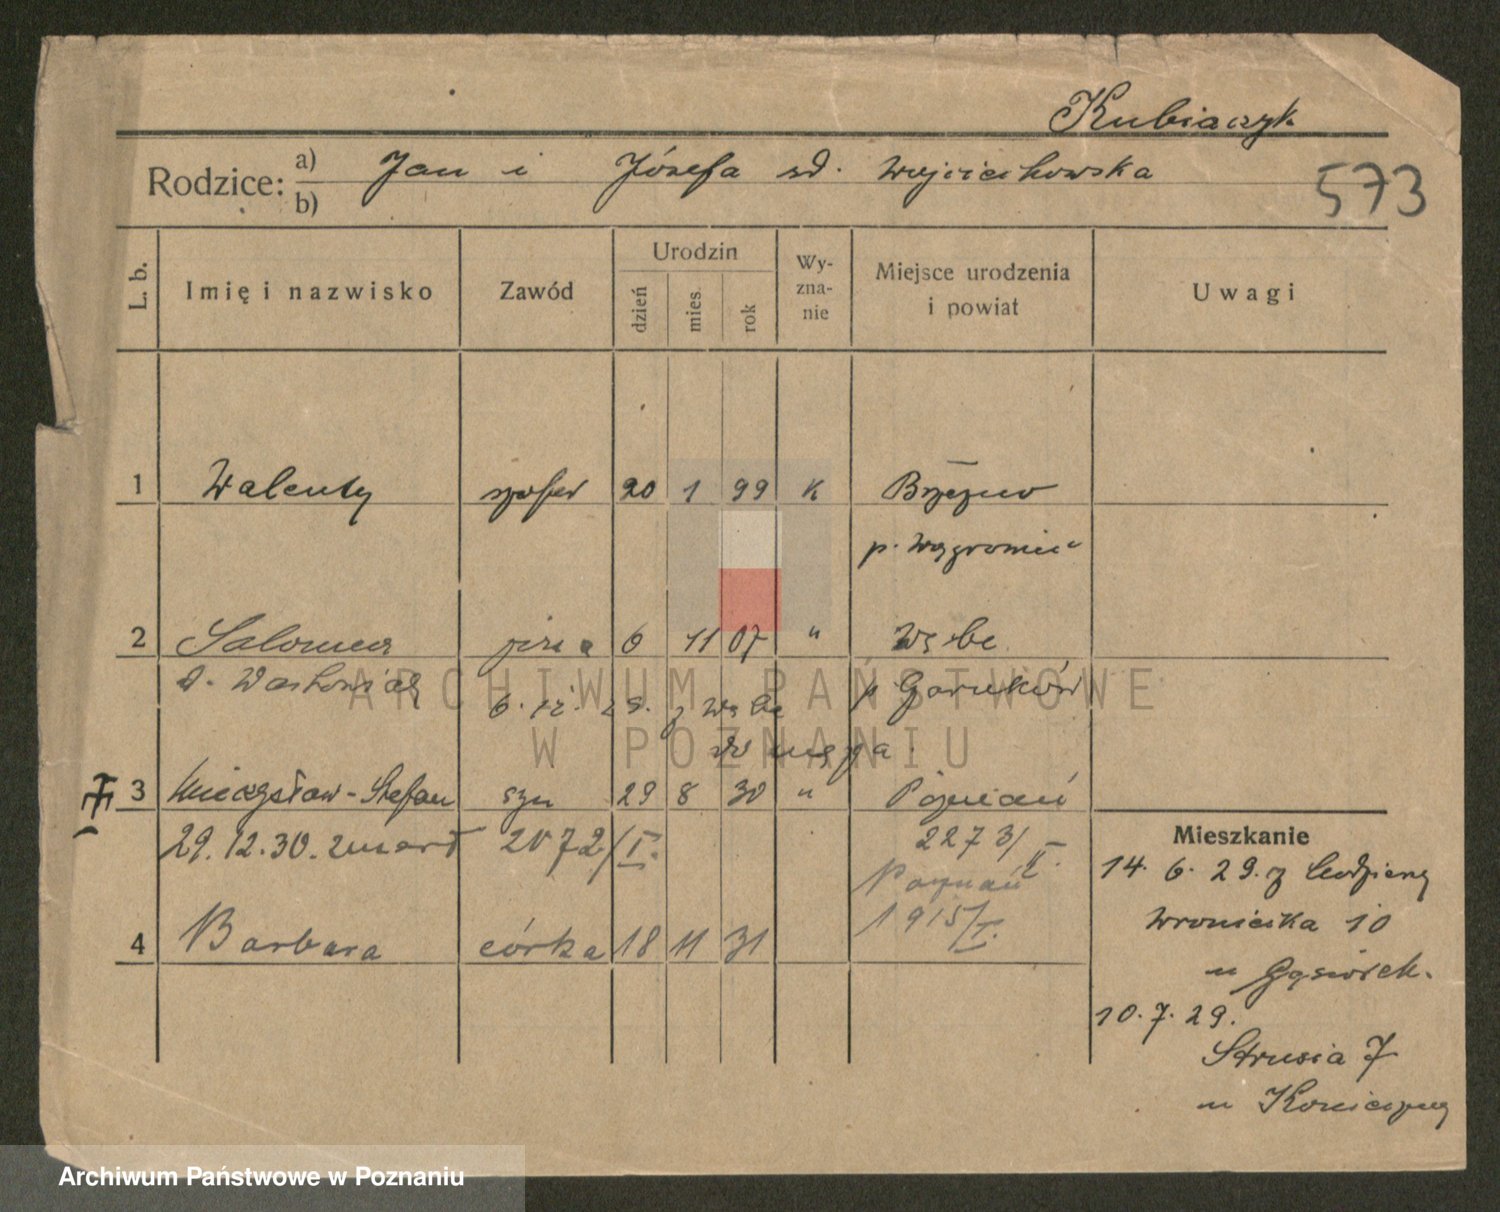 Kubiaczyk
Rodzice: a) b) Jan i Józefa zd. Wojciechowska
573
L. b. Imię i nazwisko Zawód Urodzin dzień mies. rok Wy-zna-nie Miejsce urodzenia i powiat Uwagi
1 Walenty szofer 20 1 99 K Brzeźno
p. Wągrowiec
2 Salomea żona 6 11 07 " Węble
d. 6. 12. 29. z
ARCHIWUM PAŃSTWOWE
W POZNANIU
do męża.
3 Mieczysław-Stefan syn 29 8 30 " Poznań
29.12.30. zmarł 2072/I. 2273/II.
Poznań
4 Barbara córka 18 11 31 1915/I.
Mieszkanie
14. 6. 29. z
Wroniecka 10
u Gąsiorek.
10. 7. 29.
Strusia 7
u Konieczny
Archiwum Państwowe w Poznaniu